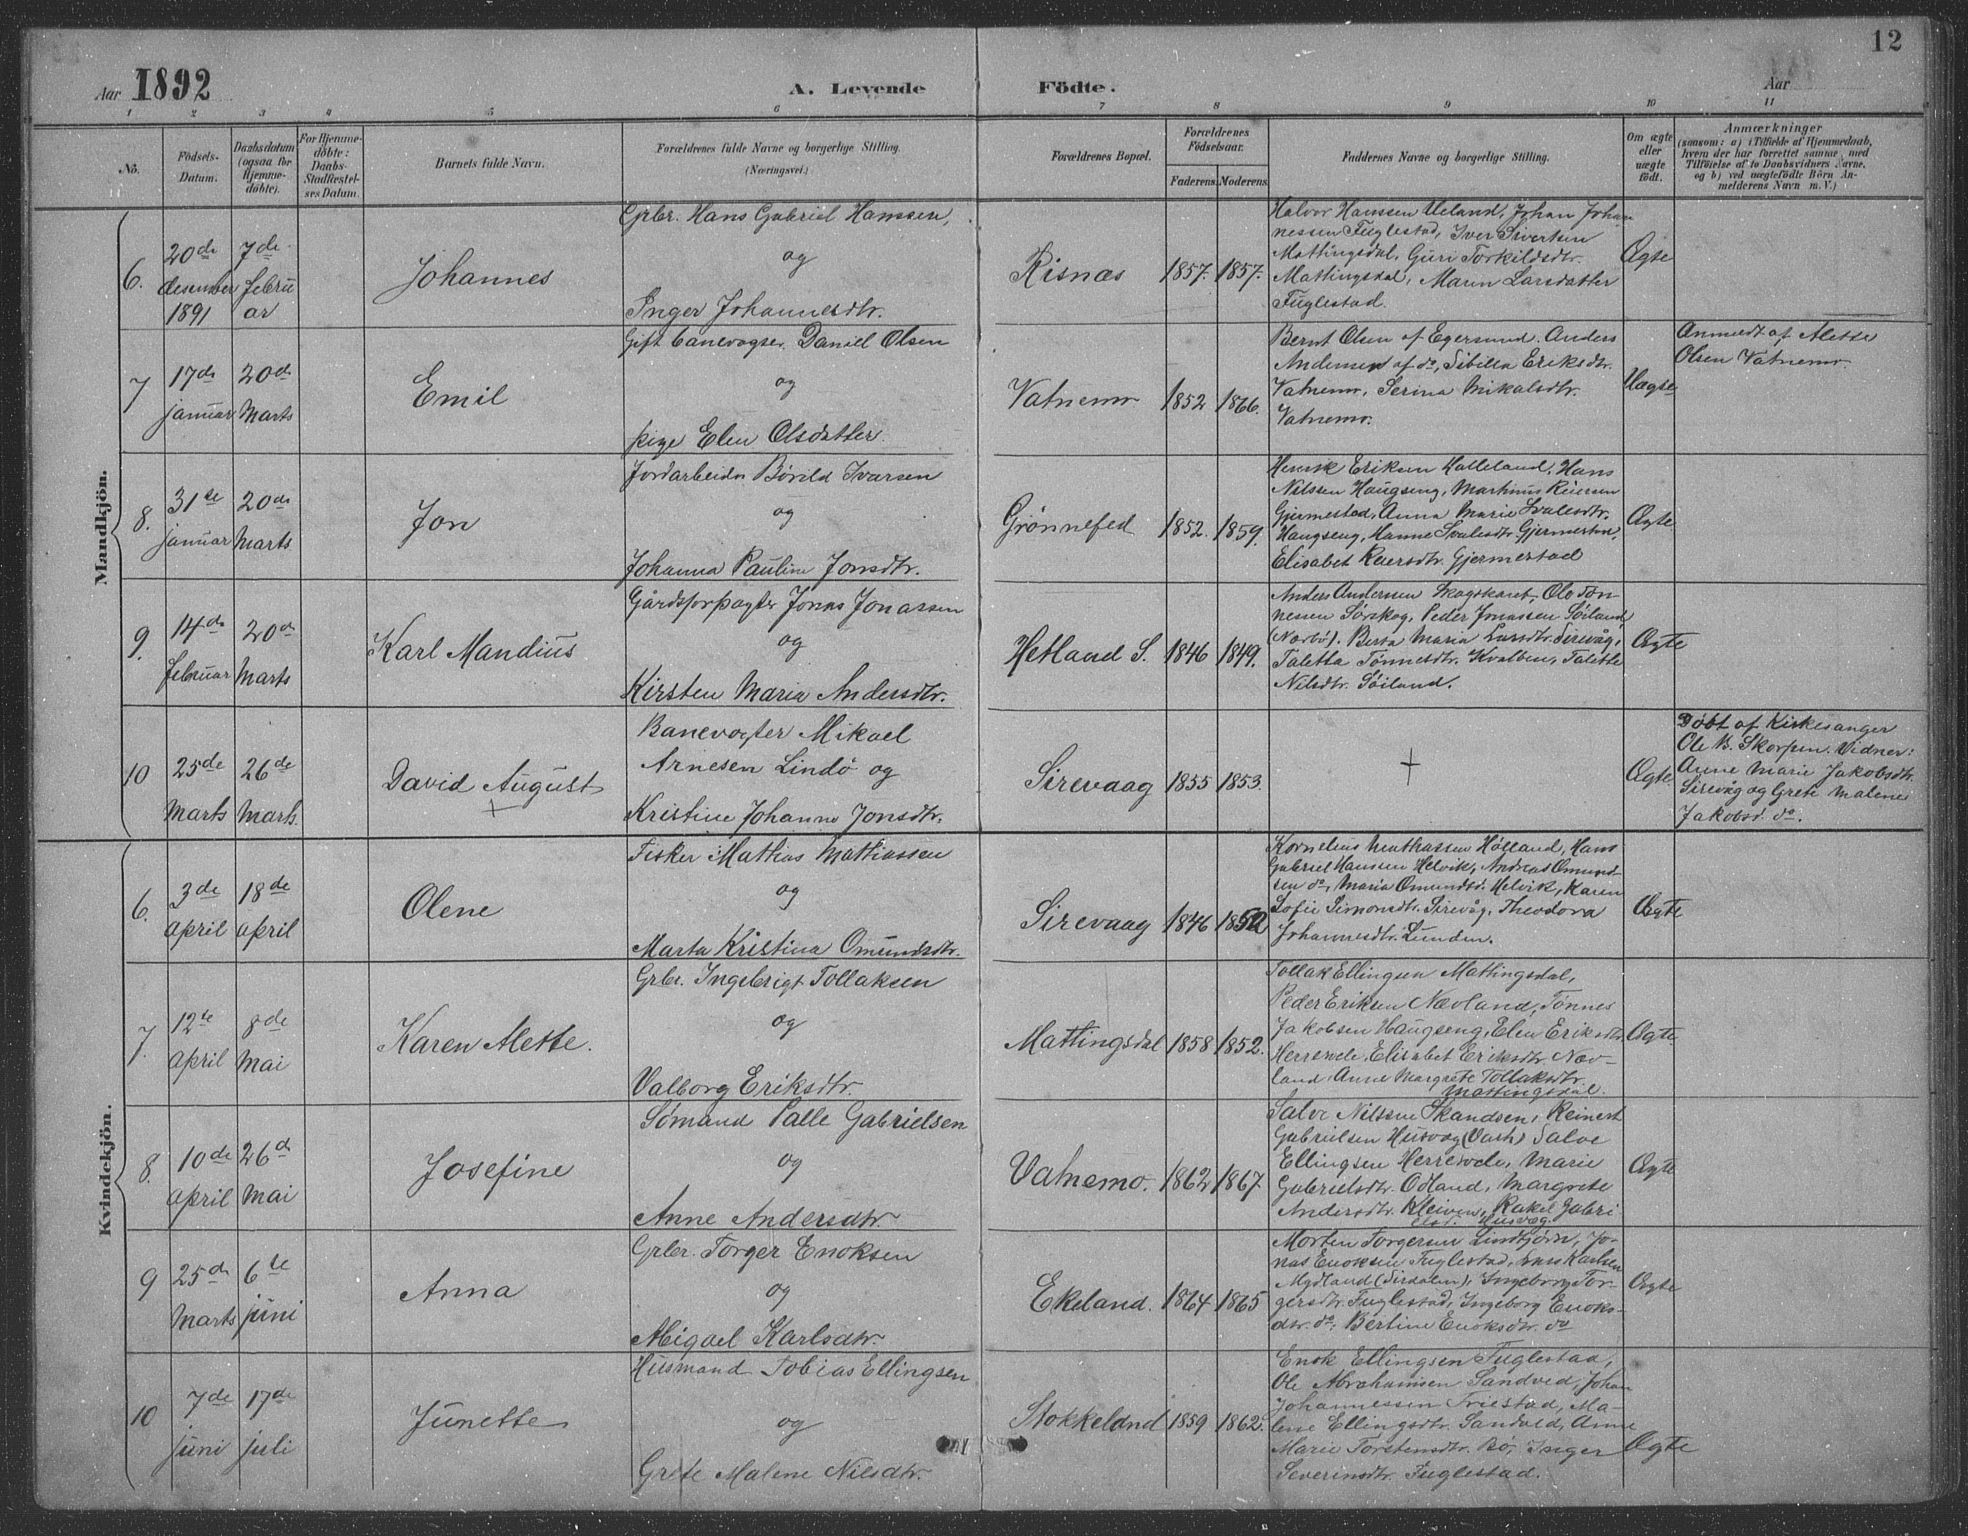 12
Aar 1892
A. Levende Födte.
Aar
1 2 3 4 5 6 7 8 9 10 11
No.
Födsels-Datum.
Daabsdatum (ogsaa for Hjemme-döbte).
For Hjemme-döbte: Daabs-Stadfæstel-ses Datum.
Barnets fulde Navn.
Forældrenes fulde Navne og borgerlige Stilling. (Næringsvei.)
Forældrenes Bopæl.
Forældrenes Födselsaar.
Faderens. Moderens.
Faddernes Navne og borgerlige Stilling.
Om ægte eller uægte födt.
Anmærkninger
(saasom: a) i Tilfælde af Hjemmedaab, hvem der har forrettet samme, med Tilföielse af to Daabsvidners Navne, og b) ved uægtefödte Börn An-melderens Navn m. V.)
Mandkjön.
6. 20de desember 1891
7de februar
Johannes
Grbr. Hans Gabriel Hanssen,
og
Inger Johannesdtr.
Risnæs
1857. 1857.
Halvor Hanssen Ueland, Johan Johan
nessen Fuglestad, Iver Sivertsen
Mattingsdal, Guri Torkildsdtr.
Mattingsdal, Maren Larsdatter
Fuglestad.
Ægte
7 17de januar
20de Marts
Emil
Gift banevogter Daniel Olsen
og
pige Elen Olsdatter.
Vatnemo
1852 1866.
Bernt Olsen af Egersund. Anders
Andersen af do, Sibilla Eriksdtr.
Vatnemo, Serina Mikalsdtr.
Vatnemo.
Uægte
Anmeldt af Alette
Olsen Vatnemo.
8. 31te januar
20de Marts
Jon
Jordarbeider Börild Ivarsen
og
Johanna Pauline Jonsdtr.
Grönnefed
1852. 1859.
Henrik Eriksen Halleland, Hans
Nilssen Haugseng, Martinus Reiersen
Gjermestad, Anna Marie Svalesdtr.
Haugseng, Hanne Svalesdtr Gjermestad,
Elisabet Reiersdtr. Gjermestad
Ægte
9. 14de februar
20de Marts
Karl Mandius
Gårdsforpagter Jonas Jonassen
og
Kirsten Maria Andersdtr.
Hetland S.
1846 1849.
Anders Andersen Skogskaret, Ole Tön-
nessen Sörskog, Peder Jonassen Söiland
(Nærbö). Berta Maria Larsdtr. Sirevåg,
Taletta Tönnesdtr. Kvalben, Talette
Nilsdtr. Söiland.
Ægte
10 25de Marts
26de Marts.
David August
+
Banevogter Mikael
Arnesen Lindö og
Kristine Johanne Jonsdtr.
Sirevaag
1855 1853.
+
Ægte
Döbt af Kirkesanger
Ole B. Skorpen. Vidner:
Anne Marie Jakobsdtr.
Sirevåg og Grete Malene
Jakobsd. do.
Kvindekjön.
6. 3de april
18de april
Olene
Fisker Mathias Mathiassen
og
Marta Kristina Omundsdtr.
Sirevaag
1846 1852
Kornelius Mathassen Hölland, Hans
Gabriel Hanssen Helvik, Andreas Omund
sen do, Maria Omundsd. Helvik, Karen
Sofie Simonsdtr. Sirevåg, Theodora
Johannesdtr. Lunden.
Ægte
7. 12te april
8de mai
Karen Alette.
Grbr. Ingebrigt Tollaksen
og
Valborg Eriksdtr.
Mattingsdal
1858 1852.
Tollak Ellingsen Mattingsdal,
Peder Eriksen Nævland, Tönnes
Jakobsen Haugseng, Elen Eriksdtr.
Herrevele, Elisabet Eriksdtr Næv-
land, Anne Margrete Tollaksdtr
Mattingsdal.
Ægte
8. 10de april
26de mai
Josefine
Sömand Palle Gabrielsen
og
Anne Andersdtr
Vatnemo.
1862 1867
Salve Nilssen Skandsen, Reinert
Gabrielsen Husvåg Salve
Ellingsen Herrevele, Marie
Gabrielsdtr. Odland, Margrete
Andersdtr. Kleiven, Rakel Gabri
elsd. Husvåg
Ægte
9 25de Marts
6te juni
Anna
Grbr. Torger Enoksen
og
Migael Karlsdtr.
Ekeland.
1864 1865
Morten Torgersen Lindtjörn, Jo-
nas Enoksen Fuglestad, Lars Karlsen
Mydland (Sirdalen), Ingeborg Tor-
gersdtr. Fuglestad, Ingeborg Enoks-
dtr. do, Bertine Enoksdtr. do
Ægte
10 7de juni
17de juli
Junette
Husmand Tobias Ellingsen
og
Grete Malene Nilsdtr.
Stokkeland
1859 1862.
Enok Ellingsen Fuglestad,
Ole Abrahamsen Sandved, Johan
Johannessen Friestad, Ma-
lene Ellingsdtr. Sandved, Anne
Marie Torstensdtr. Bö, Inger
Severinsdtr. Fuglestad.
Ægte